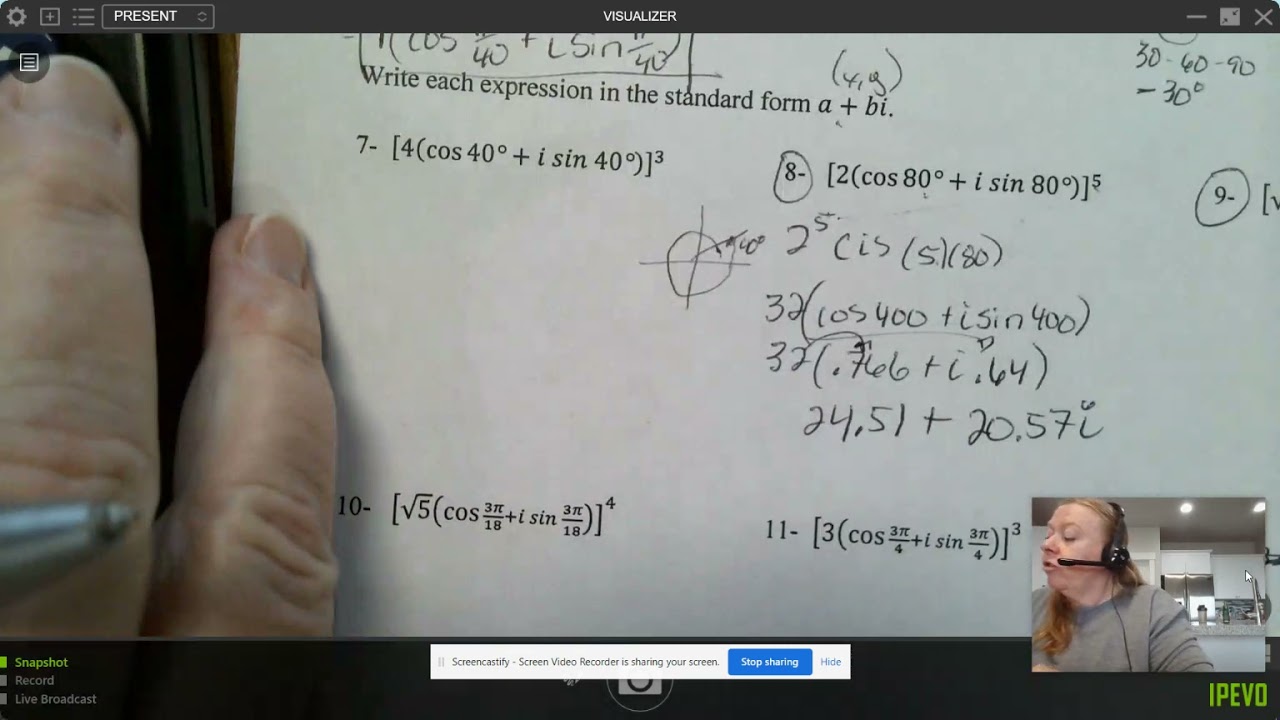 PRESENT
VISUALIZER
(cos π/40 + i sin π/40)
(x, y)
30-60-90
-30°
Write each expression in the standard form a + bi.
7- [4(cos 40° + i sin 40°)]³
8- [2(cos 80° + i sin 80°)]⁵
9- [√
40°
2⁵ cis (5)(80)
32(cos 400 + i sin 400)
32(.766 + i .64)
24.51 + 20.57i
10- [√5(cos 3π/18 + i sin 3π/18)]⁴
11- [3(cos 3π/4 + i sin 3π/4)]³
Snapshot
Record
Live Broadcast
Screencastify - Screen Video Recorder is sharing your screen.
Stop sharing
Hide
IPEVO